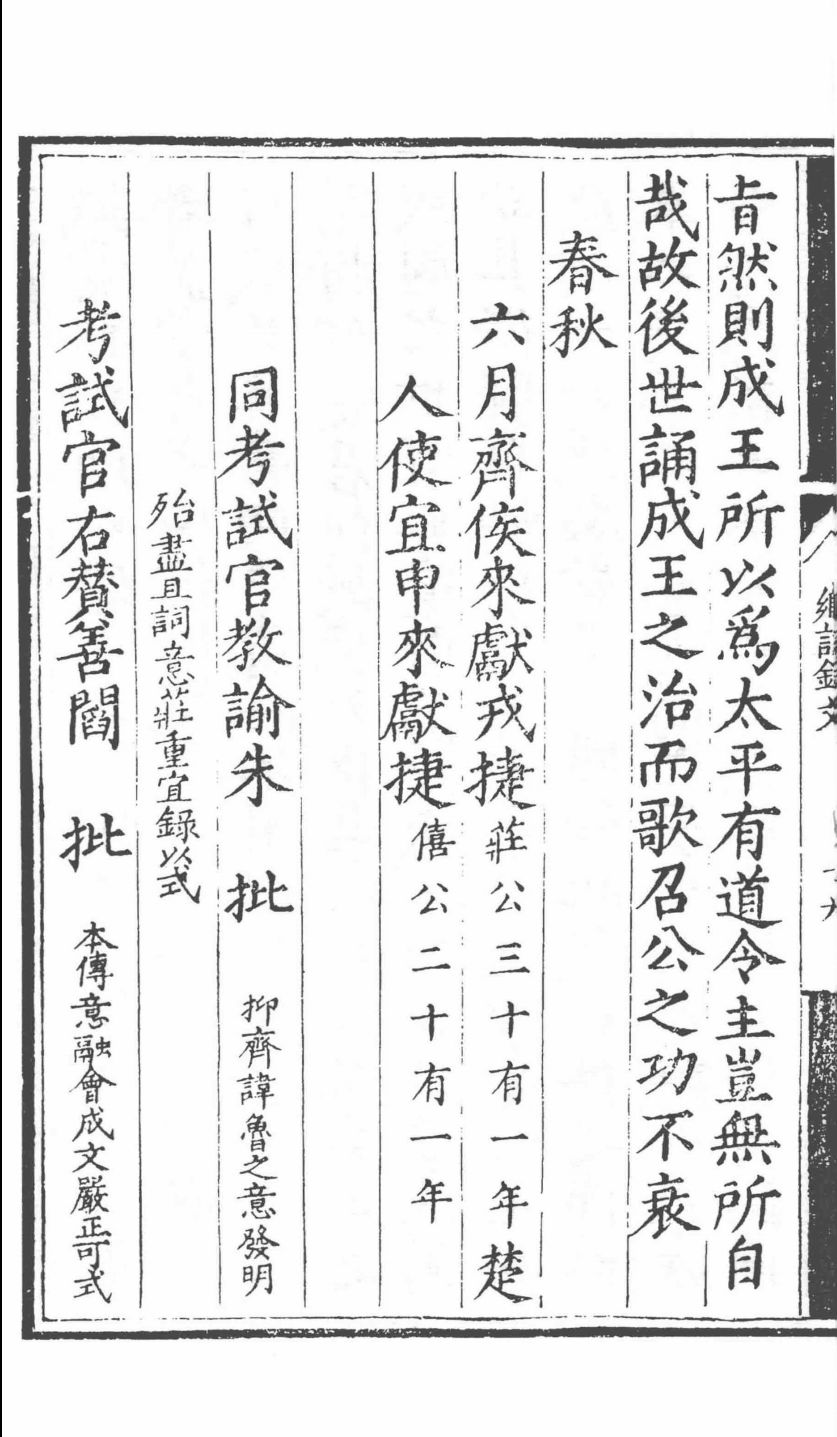 旨然則成王所以為太平有道令主豈無所自
哉故後世誦成王之治而歌召公之功不衰
春秋
六月齊侯來獻戎捷莊公三十有一年楚
人使宜申來獻捷僖公二十有一年
同考試官教諭朱 批 抑齊諱魯之意發明
殆盡且詞意莊重宜錄以式
考試官右贊善閻 批 本傳意融會成文嚴正可式